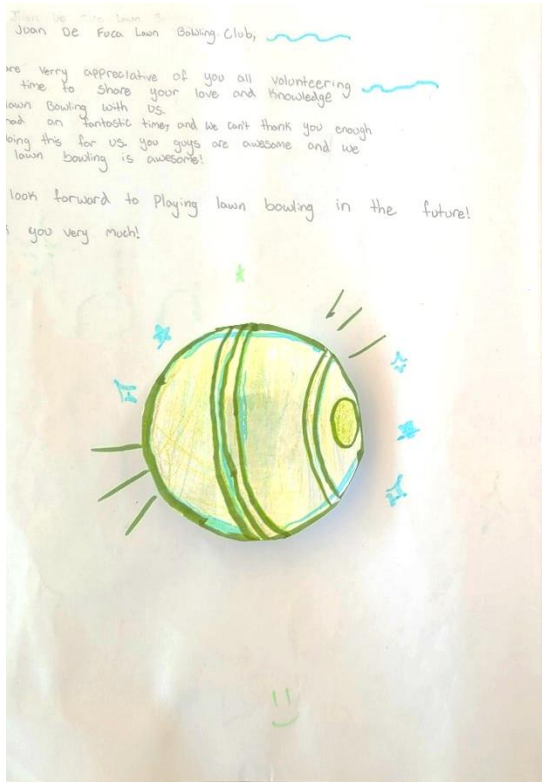 Juan De Fuca Lawn Bowling Club,
are Verry appreciative of you all volunteering
time to share your love and Knowledge
lawn Bowling with us.
had an fantastic time, and we can't thank you enough
doing this for us. you guys are awesome and we
lawn bowling is awesome!
look forward to Playing lawn bowling in the future!
you very much!